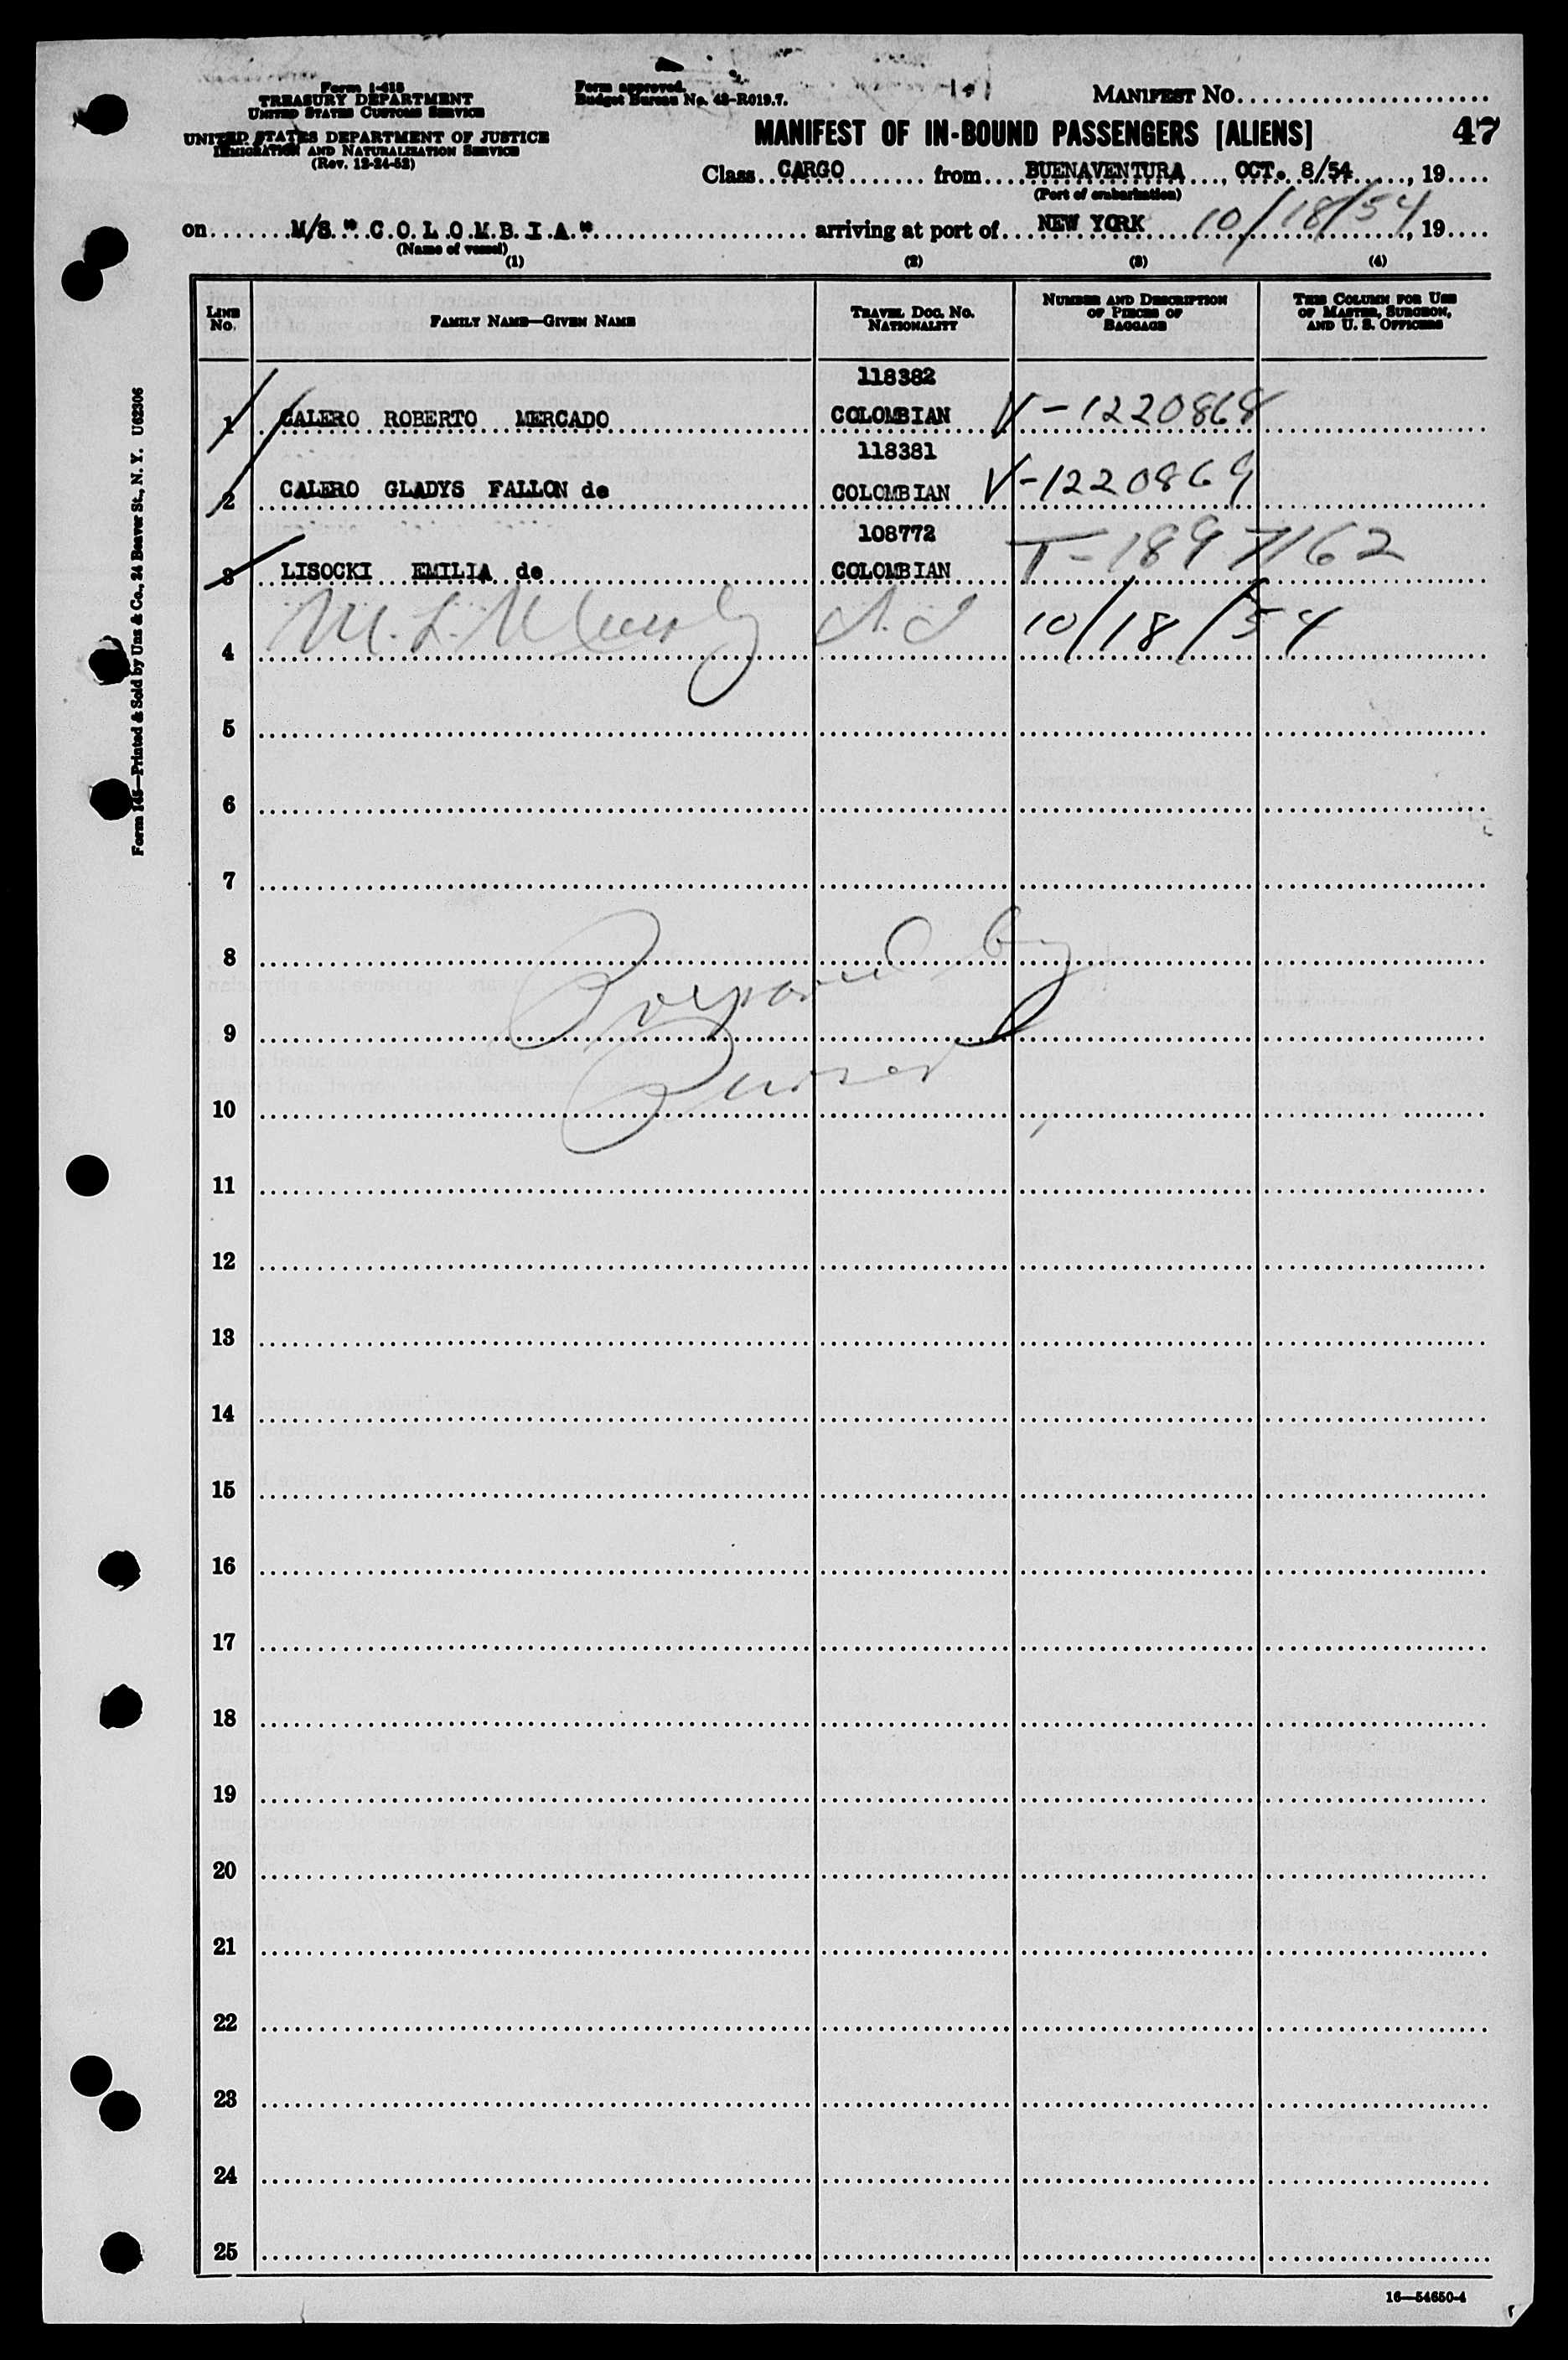 Form I-418
TREASURY DEPARTMENT
UNITED STATES CUSTOMS SERVICE
UNITED STATES DEPARTMENT OF JUSTICE
IMMIGRATION AND NATURALIZATION SERVICE
(Rev. 12-24-52)
Form approved.
Budget Bureau No. 43-R019.7.
MANIFEST NO.
MANIFEST OF IN-BOUND PASSENGERS [ALIENS] 47
Class CARGO from BUENAVENTURA, OCT. 8/54, 19
(Port of embarkation)
on M/S "C.O.L.O.M.B.I.A" arriving at port of NEW YORK 10/18/54, 19
(Name of vessel)
(1) (2) (3) (4)
LINE No. FAMILY NAME—GIVEN NAME TRAVEL DOC. NO. NATIONALITY NUMBER AND DESCRIPTION OF PIECES OF BAGGAGE THIS COLUMN FOR USE OF MASTER, SURGEON, AND U. S. OFFICERS
118382
1 CALERO ROBERTO MERCADO COLOMBIAN V-1220868
118381
2 CALERO GLADYS FALLON de COLOMBIAN V-1220869
108772
3 LISOCKI EMILIA de COLOMBIAN T-1897162
4 M. L. 10/18/54
5
6
7
8 by
9
10 Purser
11
12
13
14
15
16
17
18
19
20
21
22
23
24
25
16—54650-4
Form 145—Printed & Sold by Unz & Co., 24 Beaver St., N. Y. U62306